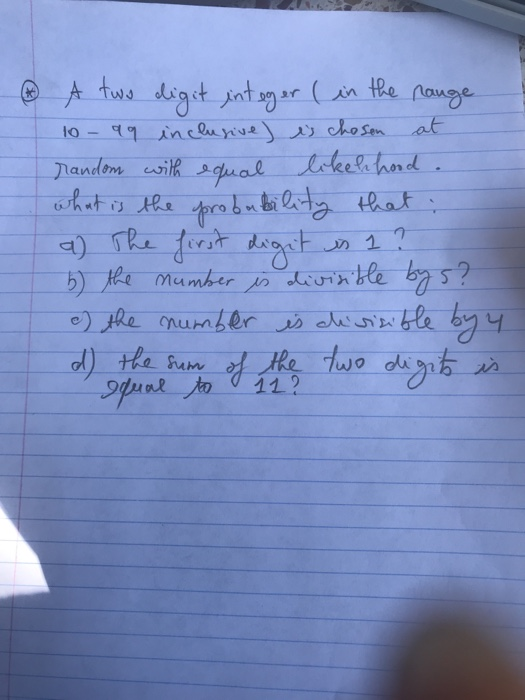 * A two digit integer (in the range
10 - 99 inclusive) is chosen at
random with equal likelihood.
what is the probability that :
a) The first digit is 1 ?
b) the number is divisible by 5?
c) the number is divisible by 4
d) the sum of the two digits is
equal to 11?